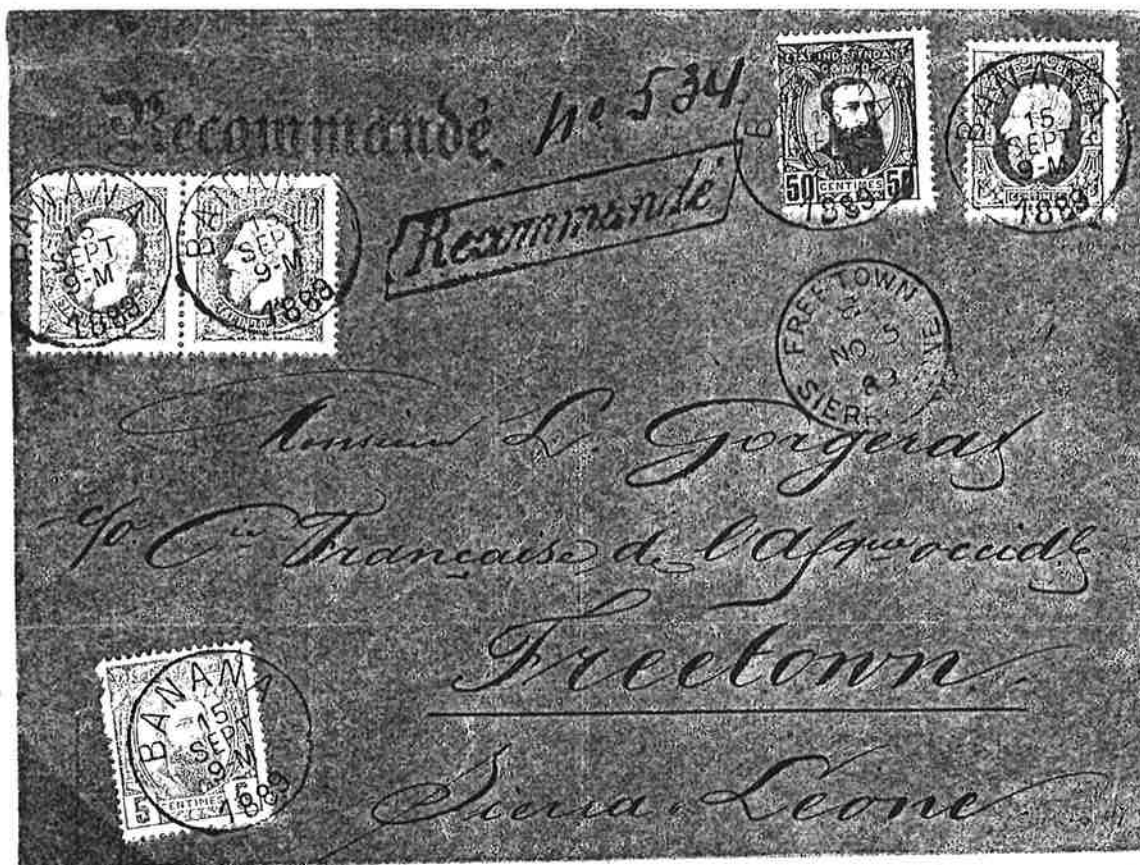 Recommandé, No 534.
Recommandé
ETAT INDEPENDANT
CONGO
50 CENTIMES 50
BANANA
15
SEPT
9-M
1889
BANANA
15
SEPT
9-M
1889
BANANA
SEP
9-M
1889
BANANA
1889
FREETOWN
NO 5
89
SIERR
Monsieur L. Gorgerat
c/o Cie Française de l'Afque occidle
Freetown
Sierra Leone
5 CENTIMES 5
BANANA
15
SEPT
9-M
1889